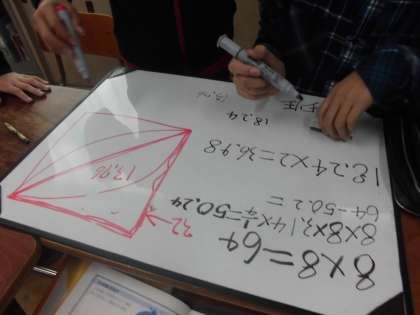 8×8=64
8×8×3.14×1/4=50.24
64-50.2=
18.24×2=36.48
18.24
32
13.76